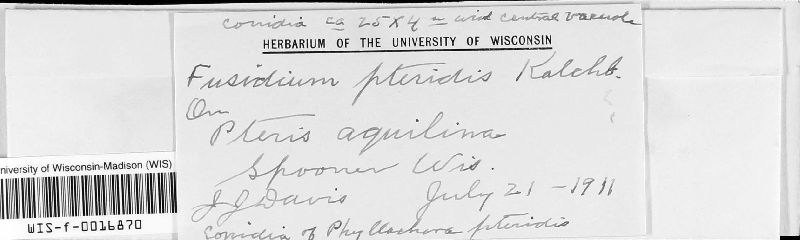 conidia ca 25 x 4 u with central vacuole
HERBARIUM OF THE UNIVERSITY OF WISCONSIN
Fusidium pteridis Kalchb.
On
Pteris aquilina
Spooner Wis.
J J Davis July 21 - 1911
Conidia of Phyllachora pteridis
niversity of Wisconsin-Madison (WIS)
WIS-f-0016870